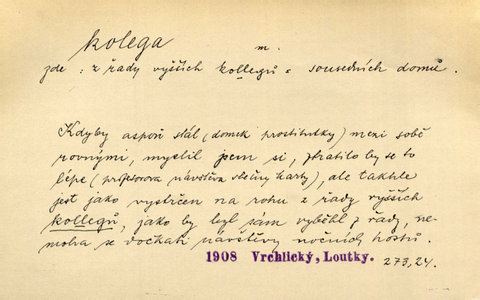 kolega m.
zde : z řady vyšších kollegů = sousedních domů.
Kdyby aspoň stál (domek prostitutky) mezi sobě
rovnými, myslil jsem si, ztratilo by se to
lépe (profesorova návštěva slečny Karty), ale takhle
jest jako vystrčen na rohu z řady vyšších
kollegů, jako by byl sám vyběhl z řady, ne-
moha se dočkati návštěvy nočních hostů.
1908 Vrchlický, Loutky. 273,24.